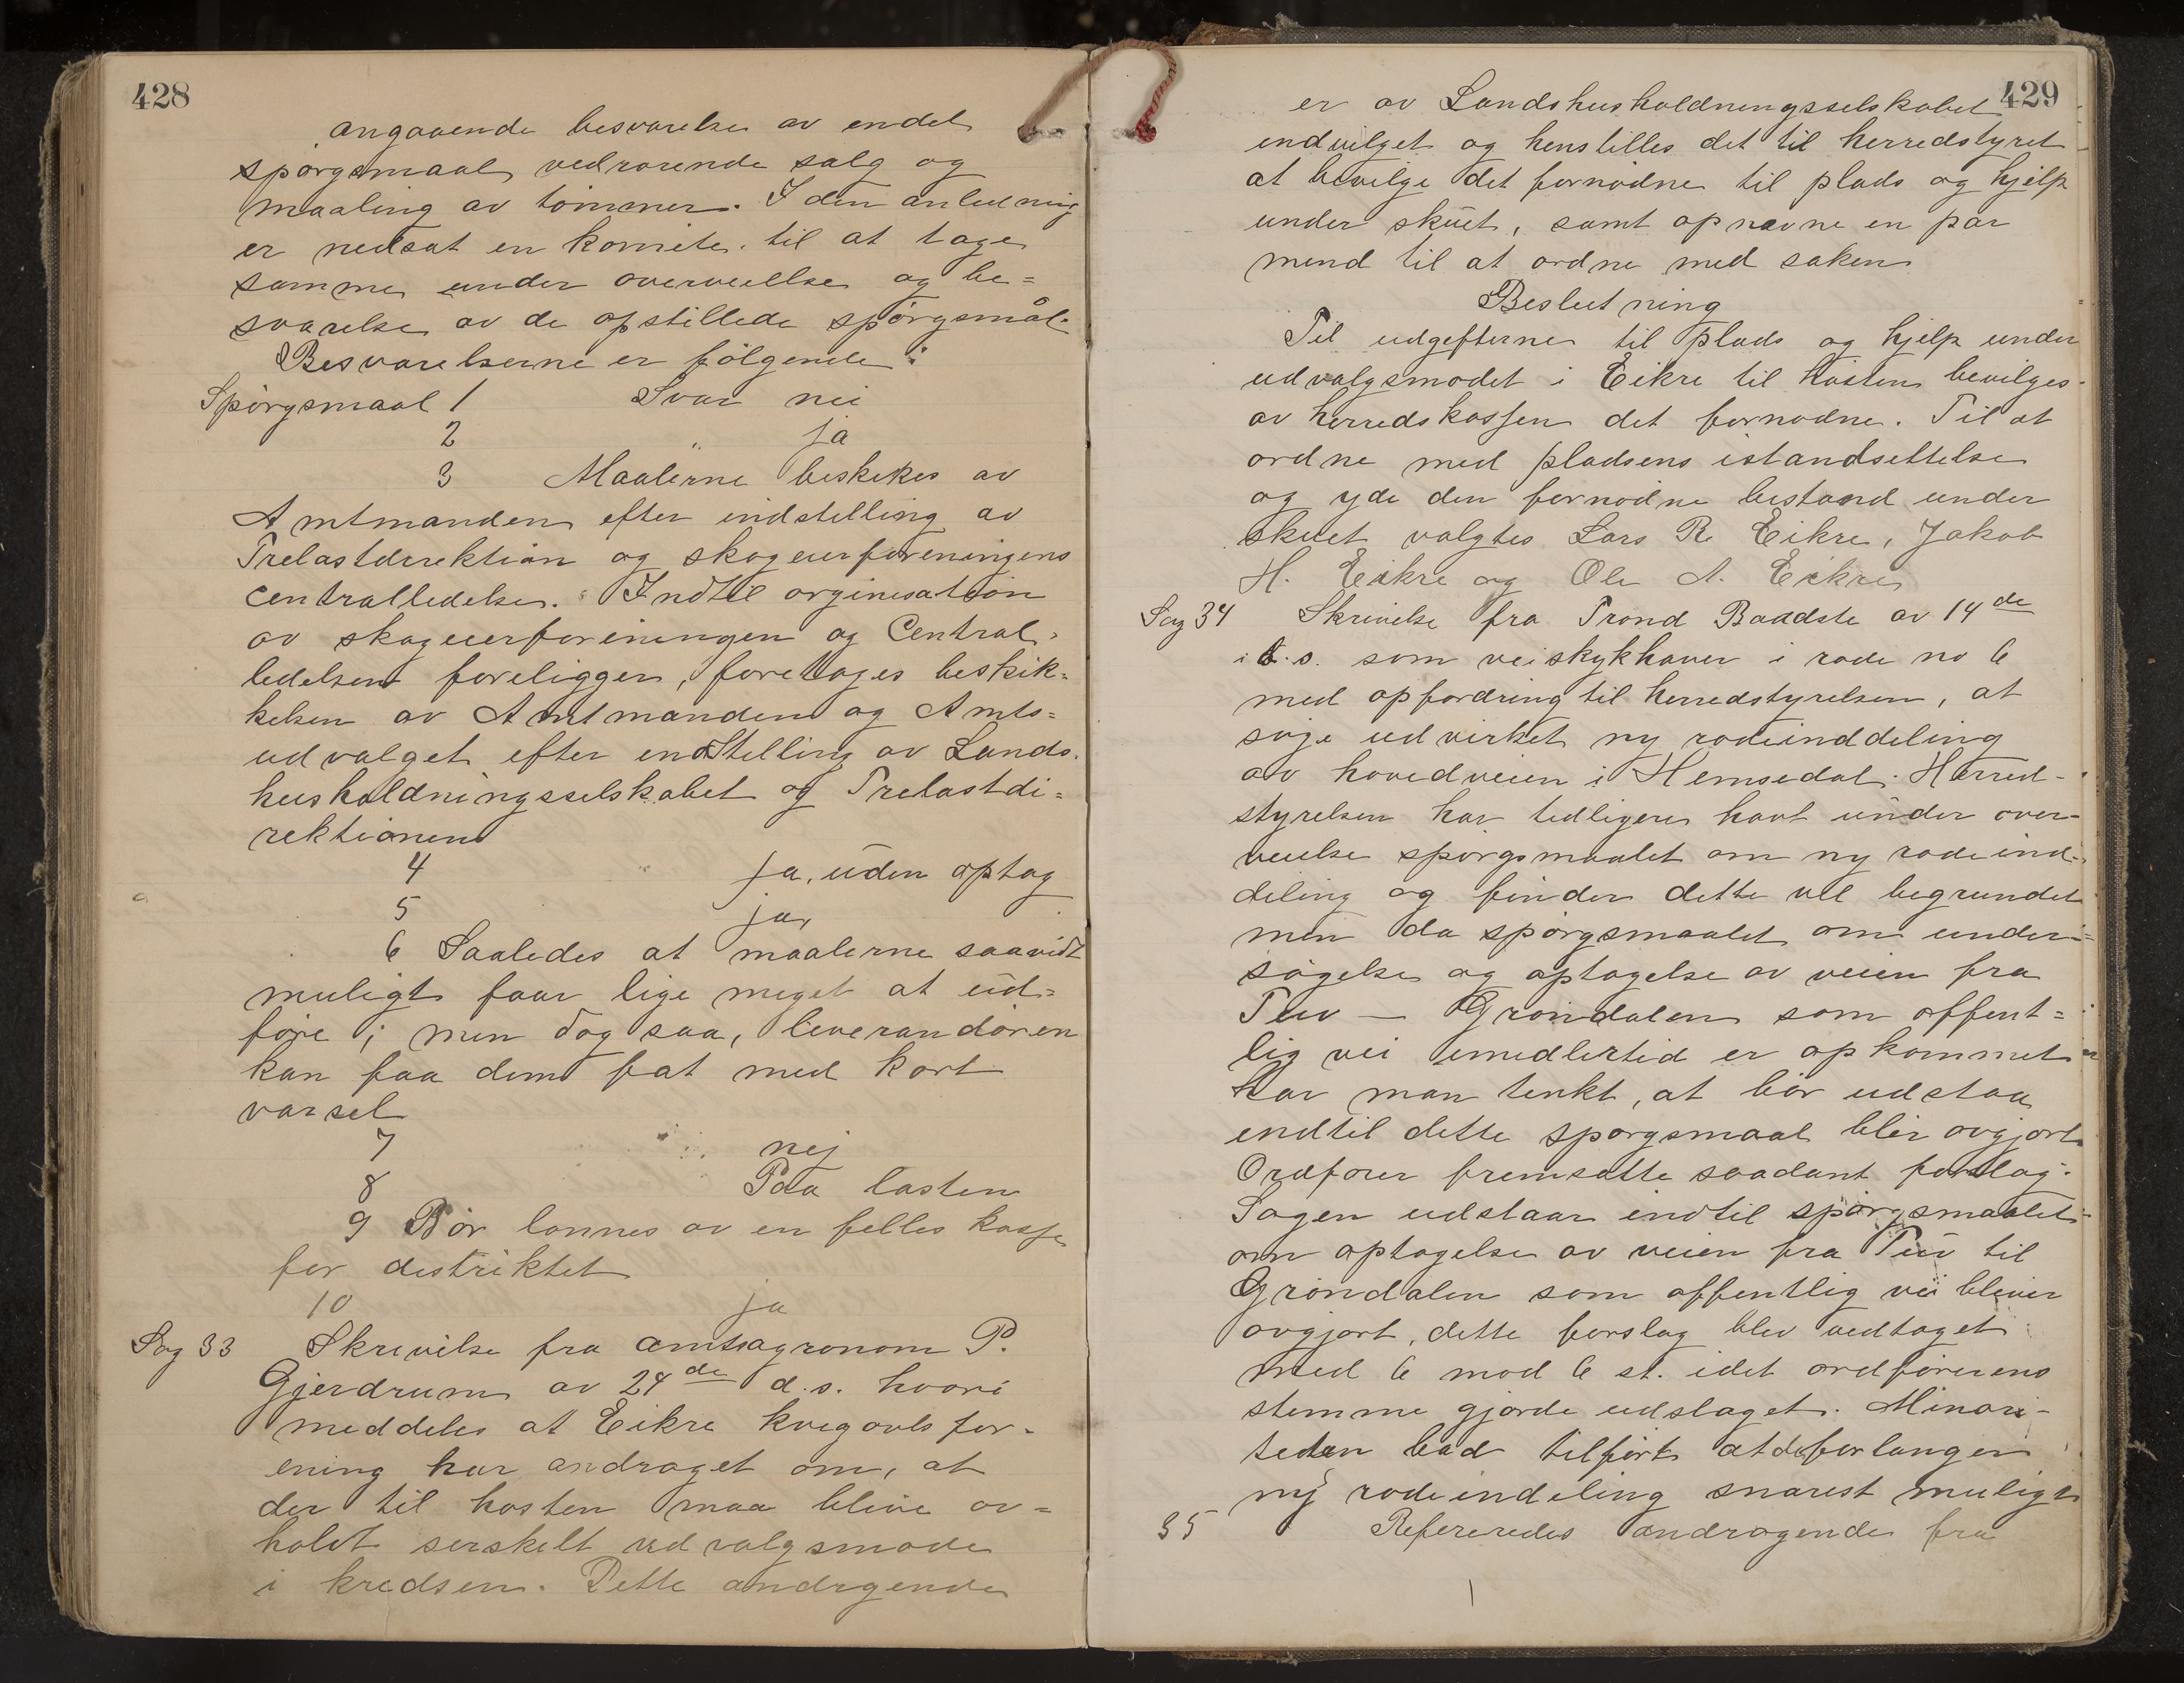 428
angaaende besvarelse av endel
spørgsmaal vedrørende salg og
maaling av tømmer. I den anledning
er nedsat en komite til at tage
samme under overveielse og be=
svarelse av de opstillede spørgsmål
Besvarelserne er følgende:
Spørgsmaal 1 Svar nei
2 " ja
3 Maalerne beskikes av
Amtmanden efter indstilling av
Trelastdirektion og skogeierforeningens
centralledelse. Indtil orginisation
av skogeierforeningen og Central=
ledelsen foreligger, foretages beskik=
kelsen av Amtmanden og Amts=
udvalget efter indstilling av Lands=
husholdningsselskabet og Trelastdi=
rektionen
4 Ja, uden optag
5 ja,
6 Saaledes at maalerne saavidt
muligt faar lige meget at ud=
føre; men dog saa, leverandøren
kan faa dem fat med kort
varsel
7 nej
8 Paa lasten
9 Bør lønnes av en felles kasse
for distriktet
10 ja
Sag 33 Skrivelse fra amtsagronom P.
Gjerdrum av 24de d.s. hvori
meddeles at Eikre kvegavlsfor=
ening har andraget om, at
der til høsten maa blive av=
holdt serskelt udvalgsmøde
i kredsen. Dette andrgende
429
er av Landshusholdningsselskabet
indvilget og henstilles det til herredstyret
at bevilge det fornødne til plads og hjelp
under skuet, samt opnevne en par
mend til at ordne med saken
Beslutning
Til udgifterne til plads og hjelp under
udvalgsmødet i Eikre til høsten bevilges
av herredskassen det fornødne. Til at
ordne med pladsens istandsettelse
og yde den fornødne bestand under
skuet valgtes Lars R Eikre, Jakob
H. Eikre og Ole A. Eikre
Sag 34 Skrivelse fra Trond Baadste av 14de
som veistykkhaver i rode no 6
med opfordring til herredstyrelsen, at
søge udvirket ny rodeinddeling
av hovedveien i Hemsedal. Herred-
styrelsen har tidligere havt under over-
veielse spørgsmaalet om ny rodeind-
deling og finder dette vel begrundet
men da spørgsmaalet om under=
søgelse og optagelse av veien fra
Tuv — Grøndalen som offent=
lig vei imedlertid er opkommet
har man tenkt, at bør udstaa
indtil dette spørgsmaal blir avgjort
Ordfører fremsatte saadant forslag:
Sagen udstaar indtil spørgsmaalet
om optagelse av veien fra Tuv til
Grøndalen som offentlig vei bliver
avgjort, dette forslag blev vedtaget
med 6 mod 6 st. idet ordførerens
stemme gjorde udslaget. Minori-
teten bad tilført at de forlanger
ny rodeindeling snarest muligt
35 Refereredes andragende fra